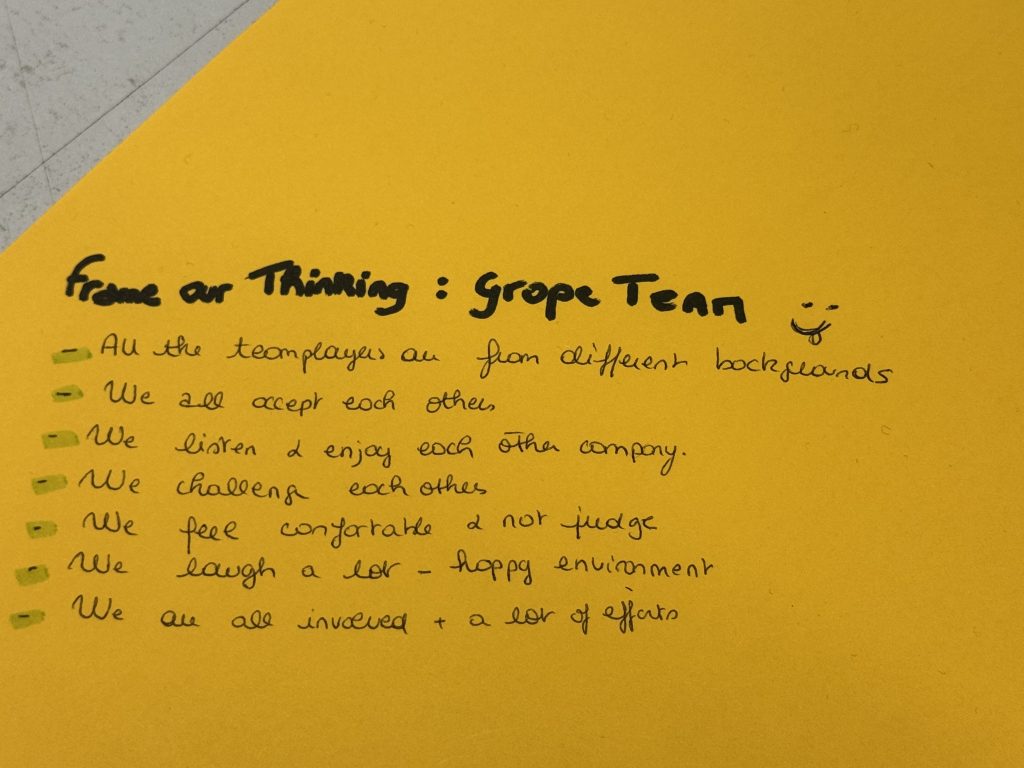 Frame our Thinking : Grape Team
- All the teamplayers are from different backgrounds
- We all accept each others
- We listen & enjoy each other company.
- We challenge each others
- We feel confortable & not judge
- We laugh a lot - happy environment
- We are all involved + a lot of efforts